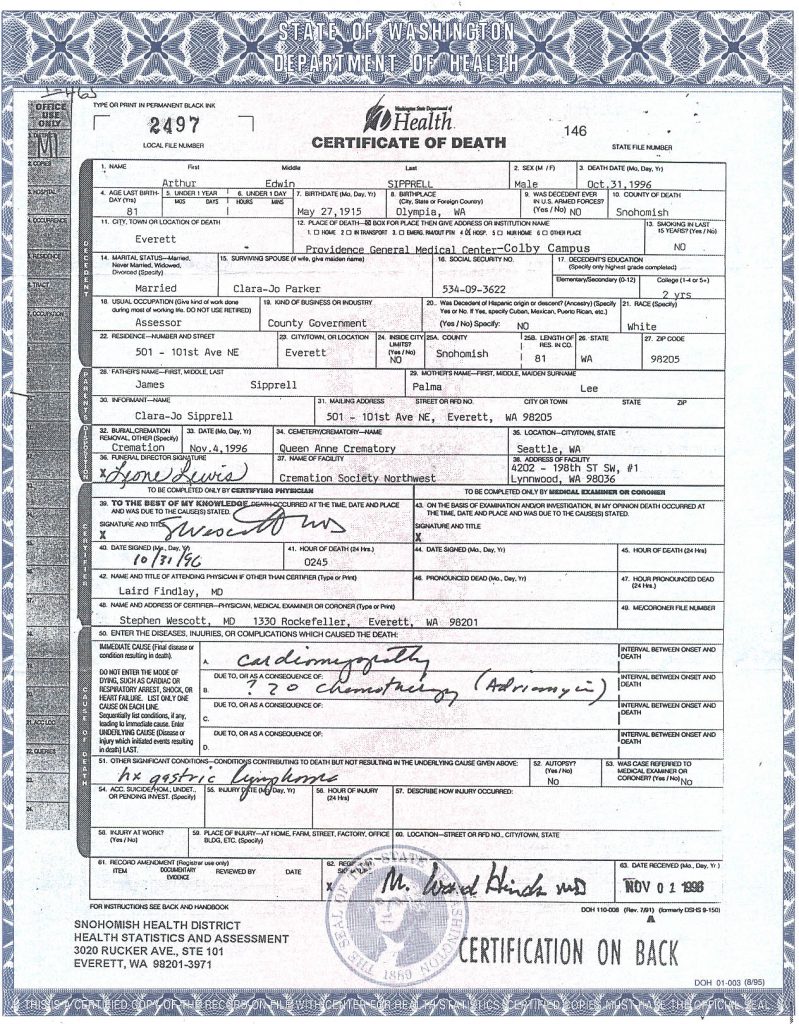 STATE OF WASHINGTON
DEPARTMENT OF HEALTH
OFFICE USE ONLY
TYPE OR PRINT IN PERMANENT BLACK INK
2497
LOCAL FILE NUMBER
Washington State Department of
Health
CERTIFICATE OF DEATH
146
STATE FILE NUMBER
1. NAME First Middle Last
Arthur Edwin SIPPRELL
2. SEX (M / F)
Male
3. DEATH DATE (Mo, Day, Yr)
Oct.31,1996
4. AGE LAST BIRTHDAY (Yrs)
81
5. UNDER 1 YEAR
MOS DAYS
6. UNDER 1 DAY
HOURS MINS
7. BIRTHDATE (Mo, Day, Yr)
May 27,1915
8. BIRTHPLACE
(City, State or Foreign Country)
Olympia, WA
9. WAS DECEDENT EVER IN U.S. ARMED FORCES?
(Yes / No) NO
10. COUNTY OF DEATH
Snohomish
11. CITY, TOWN OR LOCATION OF DEATH
Everett
12. PLACE OF DEATH—☒ BOX FOR PLACE THEN GIVE ADDRESS OR INSTITUTION NAME
1. ☐ HOME 2 ☐ IN TRANSPORT 3. ☐ EMERG. RM/OUT PTN 4 ☒ HOSP. 5 ☐ NUR HOME 6 ☐ OTHER PLACE
Providence General Medical Center-Colby Campus
13. SMOKING IN LAST 15 YEARS? (Yes / No)
NO
14. MARITAL STATUS—Married, Never Married, Widowed, Divorced (Specify)
Married
15. SURVIVING SPOUSE (if wife, give maiden name)
Clara-Jo Parker
16. SOCIAL SECURITY NO.
534-09-3622
17. DECEDENT'S EDUCATION
(Specify only highest grade completed)
Elementary/Secondary (0-12) College (1-4 or 5+)
2 yrs
18. USUAL OCCUPATION (Give kind of work done during most of working life. DO NOT USE RETIRED)
Assessor
19. KIND OF BUSINESS OR INDUSTRY
County Government
20. Was Decedent of Hispanic origin or descent? (Ancestry) (Specify Yes or No. If Yes, specify Cuban, Mexican, Puerto Rican, etc.)
(Yes / No) Specify: NO
21. RACE (Specify)
White
22. RESIDENCE—NUMBER AND STREET
501 - 101st Ave NE
23. CITY/TOWN, OR LOCATION
Everett
24. INSIDE CITY LIMITS?
(Yes / No)
NO
25A. COUNTY
Snohomish
25B. LENGTH OF RES. IN CO.
81
26. STATE
WA
27. ZIP CODE
98205
28. FATHER'S NAME—FIRST, MIDDLE, LAST
James Sipprell
29. MOTHER'S NAME—FIRST, MIDDLE, MAIDEN SURNAME
Palma Lee
30. INFORMANT—NAME
Clara-Jo Sipprell
31. MAILING ADDRESS STREET OR RFD NO. CITY OR TOWN STATE ZIP
501 - 101st Ave NE, Everett, WA 98205
32. BURIAL, CREMATION REMOVAL, OTHER (Specify)
Cremation
33. DATE (Mo, Day, Yr)
Nov.4,1996
34. CEMETERY/CREMATORY—NAME
Queen Anne Crematory
35. LOCATION—CITY/TOWN, STATE
Seattle, WA
36. FUNERAL DIRECTOR SIGNATURE
X Leone Lewis
37. NAME OF FACILITY
Cremation Society Northwest
38. ADDRESS OF FACILITY
4202 - 198th ST SW, #1
Lynnwood, WA 98036
TO BE COMPLETED ONLY BY CERTIFYING PHYSICIAN
TO BE COMPLETED ONLY BY MEDICAL EXAMINER OR CORONER
39. TO THE BEST OF MY KNOWLEDGE, DEATH OCCURRED AT THE TIME, DATE AND PLACE AND WAS DUE TO THE CAUSE(S) STATED.
SIGNATURE AND TITLE
X SWescott MD
43. ON THE BASIS OF EXAMINATION AND/OR INVESTIGATION, IN MY OPINION DEATH OCCURRED AT THE TIME, DATE AND PLACE AND WAS DUE TO THE CAUSE(S) STATED.
SIGNATURE AND TITLE
X
40. DATE SIGNED (Mo., Day, Yr)
10/31/96
41. HOUR OF DEATH (24 Hrs.)
0245
44. DATE SIGNED (Mo., Day, Yr)
45. HOUR OF DEATH (24 Hrs)
42. NAME AND TITLE OF ATTENDING PHYSICIAN IF OTHER THAN CERTIFIER (Type or Print)
Laird Findlay, MD
46. PRONOUNCED DEAD (Mo., Day, Yr)
47. HOUR PRONOUNCED DEAD (24 Hrs.)
48. NAME AND ADDRESS OF CERTIFIER—PHYSICIAN, MEDICAL EXAMINER OR CORONER (Type or Print)
Stephen Wescott, MD 1330 Rockefeller, Everett, WA 98201
49. ME/CORONER FILE NUMBER
50. ENTER THE DISEASES, INJURIES, OR COMPLICATIONS WHICH CAUSED THE DEATH:
IMMEDIATE CAUSE (Final disease or condition resulting in death).
DO NOT ENTER THE MODE OF DYING, SUCH AS CARDIAC OR RESPIRATORY ARREST, SHOCK, OR HEART FAILURE. LIST ONLY ONE CAUSE ON EACH LINE.
Sequentially list conditions, if any, leading to immediate cause. Enter UNDERLYING CAUSE (Disease or injury which initiated events resulting in death) LAST.
A. cardiomyopathy
INTERVAL BETWEEN ONSET AND DEATH
DUE TO, OR AS A CONSEQUENCE OF:
B. ? 2o chemotherapy (Adriamycin)
INTERVAL BETWEEN ONSET AND DEATH
DUE TO, OR AS A CONSEQUENCE OF:
C.
INTERVAL BETWEEN ONSET AND DEATH
DUE TO, OR AS A CONSEQUENCE OF:
D.
INTERVAL BETWEEN ONSET AND DEATH
51. OTHER SIGNIFICANT CONDITIONS—CONDITIONS CONTRIBUTING TO DEATH BUT NOT RESULTING IN THE UNDERLYING CAUSE GIVEN ABOVE:
hx gastric lymphoma
52. AUTOPSY?
(Yes / No)
No
53. WAS CASE REFERRED TO MEDICAL EXAMINER OR CORONER? (Yes / No) No
54. ACC, SUICIDE, HOM., UNDET., OR PENDING INVEST. (Specify)
55. INJURY DATE (Mo, Day, Yr)
56. HOUR OF INJURY (24 Hrs)
57. DESCRIBE HOW INJURY OCCURRED:
58. INJURY AT WORK?
(Yes / No)
59. PLACE OF INJURY—AT HOME, FARM, STREET, FACTORY, OFFICE BLDG, ETC. (Specify)
60. LOCATION—STREET OR RFD NO., CITY/TOWN, STATE
61. RECORD AMENDMENT (Registrar use only)
ITEM DOCUMENTARY EVIDENCE REVIEWED BY DATE
62.
X M. Ward Hinds MD
63. DATE RECEIVED (Mo., Day, Yr)
NOV 01 1996
FOR INSTRUCTIONS SEE BACK AND HANDBOOK
DOH 110-008 (Rev. 7/91) (formerly DSHS 9-150)
SNOHOMISH HEALTH DISTRICT
HEALTH STATISTICS AND ASSESSMENT
3020 RUCKER AVE., STE 101
EVERETT, WA 98201-3971
THE SEAL OF THE STATE OF WASHINGTON
1889
CERTIFICATION ON BACK
DOH 01-003 (8/95)
THIS IS A CERTIFIED COPY OF THE RECORD ON FILE WITH CENTER FOR HEALTH STATISTICS CERTIFIED COPIES MUST HAVE THE OFFICIAL SEAL